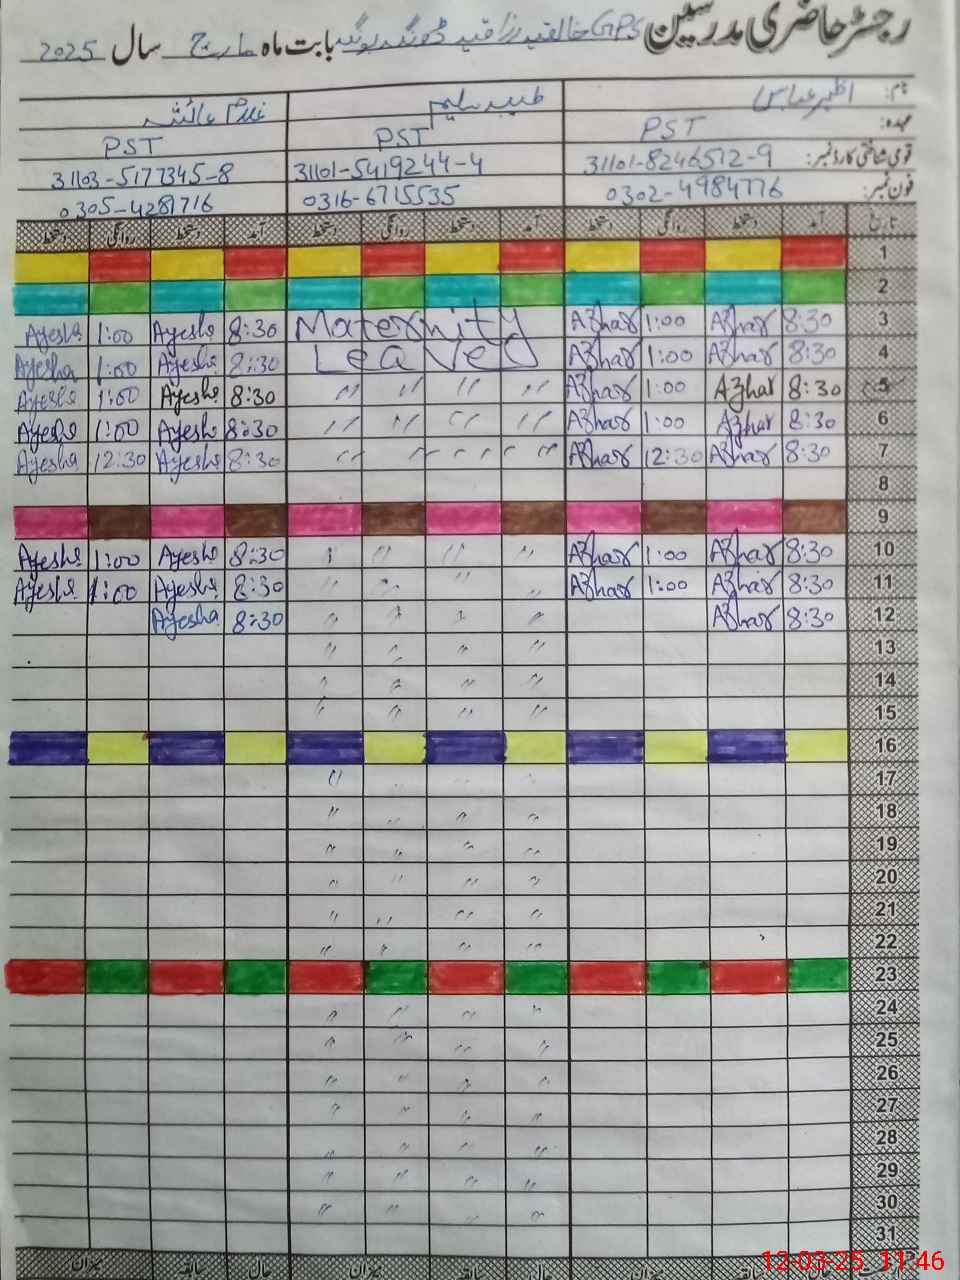 رجسٹر حاضری مدرسین GPS بابت ماہ مارچ سال 2025
نام: اظہر عباس طیبہ سلیم غلام عائشہ
عہدہ: PST PST PST
قومی شناختی کارڈ نمبر: 31101-8246512-9 31101-5419244-4 31103-5177345-8
فون نمبر: 0302-4984776 0316-6715535 0305-4281716
تاریخ آمد دستخط روانگی دستخط آمد دستخط روانگی دستخط آمد دستخط روانگی دستخط
1
2
Ayesha 1:00 Ayesha 8:30 Maternity Azhar 1:00 Azhar 8:30 3
Ayesha 1:00 Ayesha 8:30 Leaved Azhar 1:00 Azhar 8:30 4
Ayesha 1:00 Ayesha 8:30 " " " " Azhar 1:00 Azhar 8:30 5
Ayesha 1:00 Ayesha 8:30 " " " " Azhar 1:00 Azhar 8:30 6
Ayesha 12:30 Ayesha 8:30 " " " " Azhar 12:30 Azhar 8:30 7
8
9
Ayesha 1:00 Ayesha 8:30 " " " " Azhar 1:00 Azhar 8:30 10
Ayesha 1:00 Ayesha 8:30 " " " " Azhar 1:00 Azhar 8:30 11
Ayesha 8:30 " " " " Azhar 8:30 12
" " " " 13
" " " " 14
" " " " 15
16
" " " " 17
" " " " 18
" " " " 19
" " " " 20
" " " " 21
" " " " 22
23
" " " " 24
" " " " 25
" " " " 26
" " " " 27
" " " " 28
" " " " 29
" " " " 30
31
حال سابقہ میزان حال میزان
12-03-25 11:46